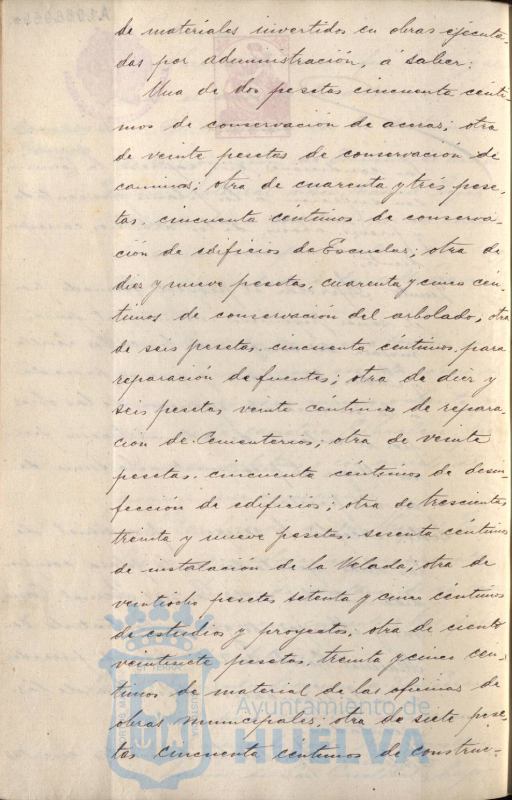 de materiales invertidos en obras ejecuta-
das por administración, á saber:
Una de dos pesetas cincuenta cénti-
mos de conservación de aceras; otra
de veinte pesetas de conservación de
caminos; otra de cuarenta y trés pese-
tas cincuenta céntimos de conserva-
ción de edificios de Escuelas; otra de
diez y nueve pesetas, cuarenta y cinco cén-
timos de conservación del arbolado; otra
de seis pesetas cincuenta céntimos para
reparación de fuentes; otra de diez y
seis pesetas veinte céntimos de repara-
ción de Cementerios; otra de veinte
pesetas cincuenta céntimos de desin-
fección de edificios; otra de trescientas
treinta y nueve pesetas sesenta céntimos
de instalación de la Velada; otra de
veintiocho pesetas setenta y cinco céntimos
de estudios y proyectos; otra de ciento
veintisiete pesetas treinta y cinco cén-
timos de material de las oficinas de
obras municipales; otra de siete pese-
tas cincuenta céntimos de construc-
Ayuntamiento de
HUELVA